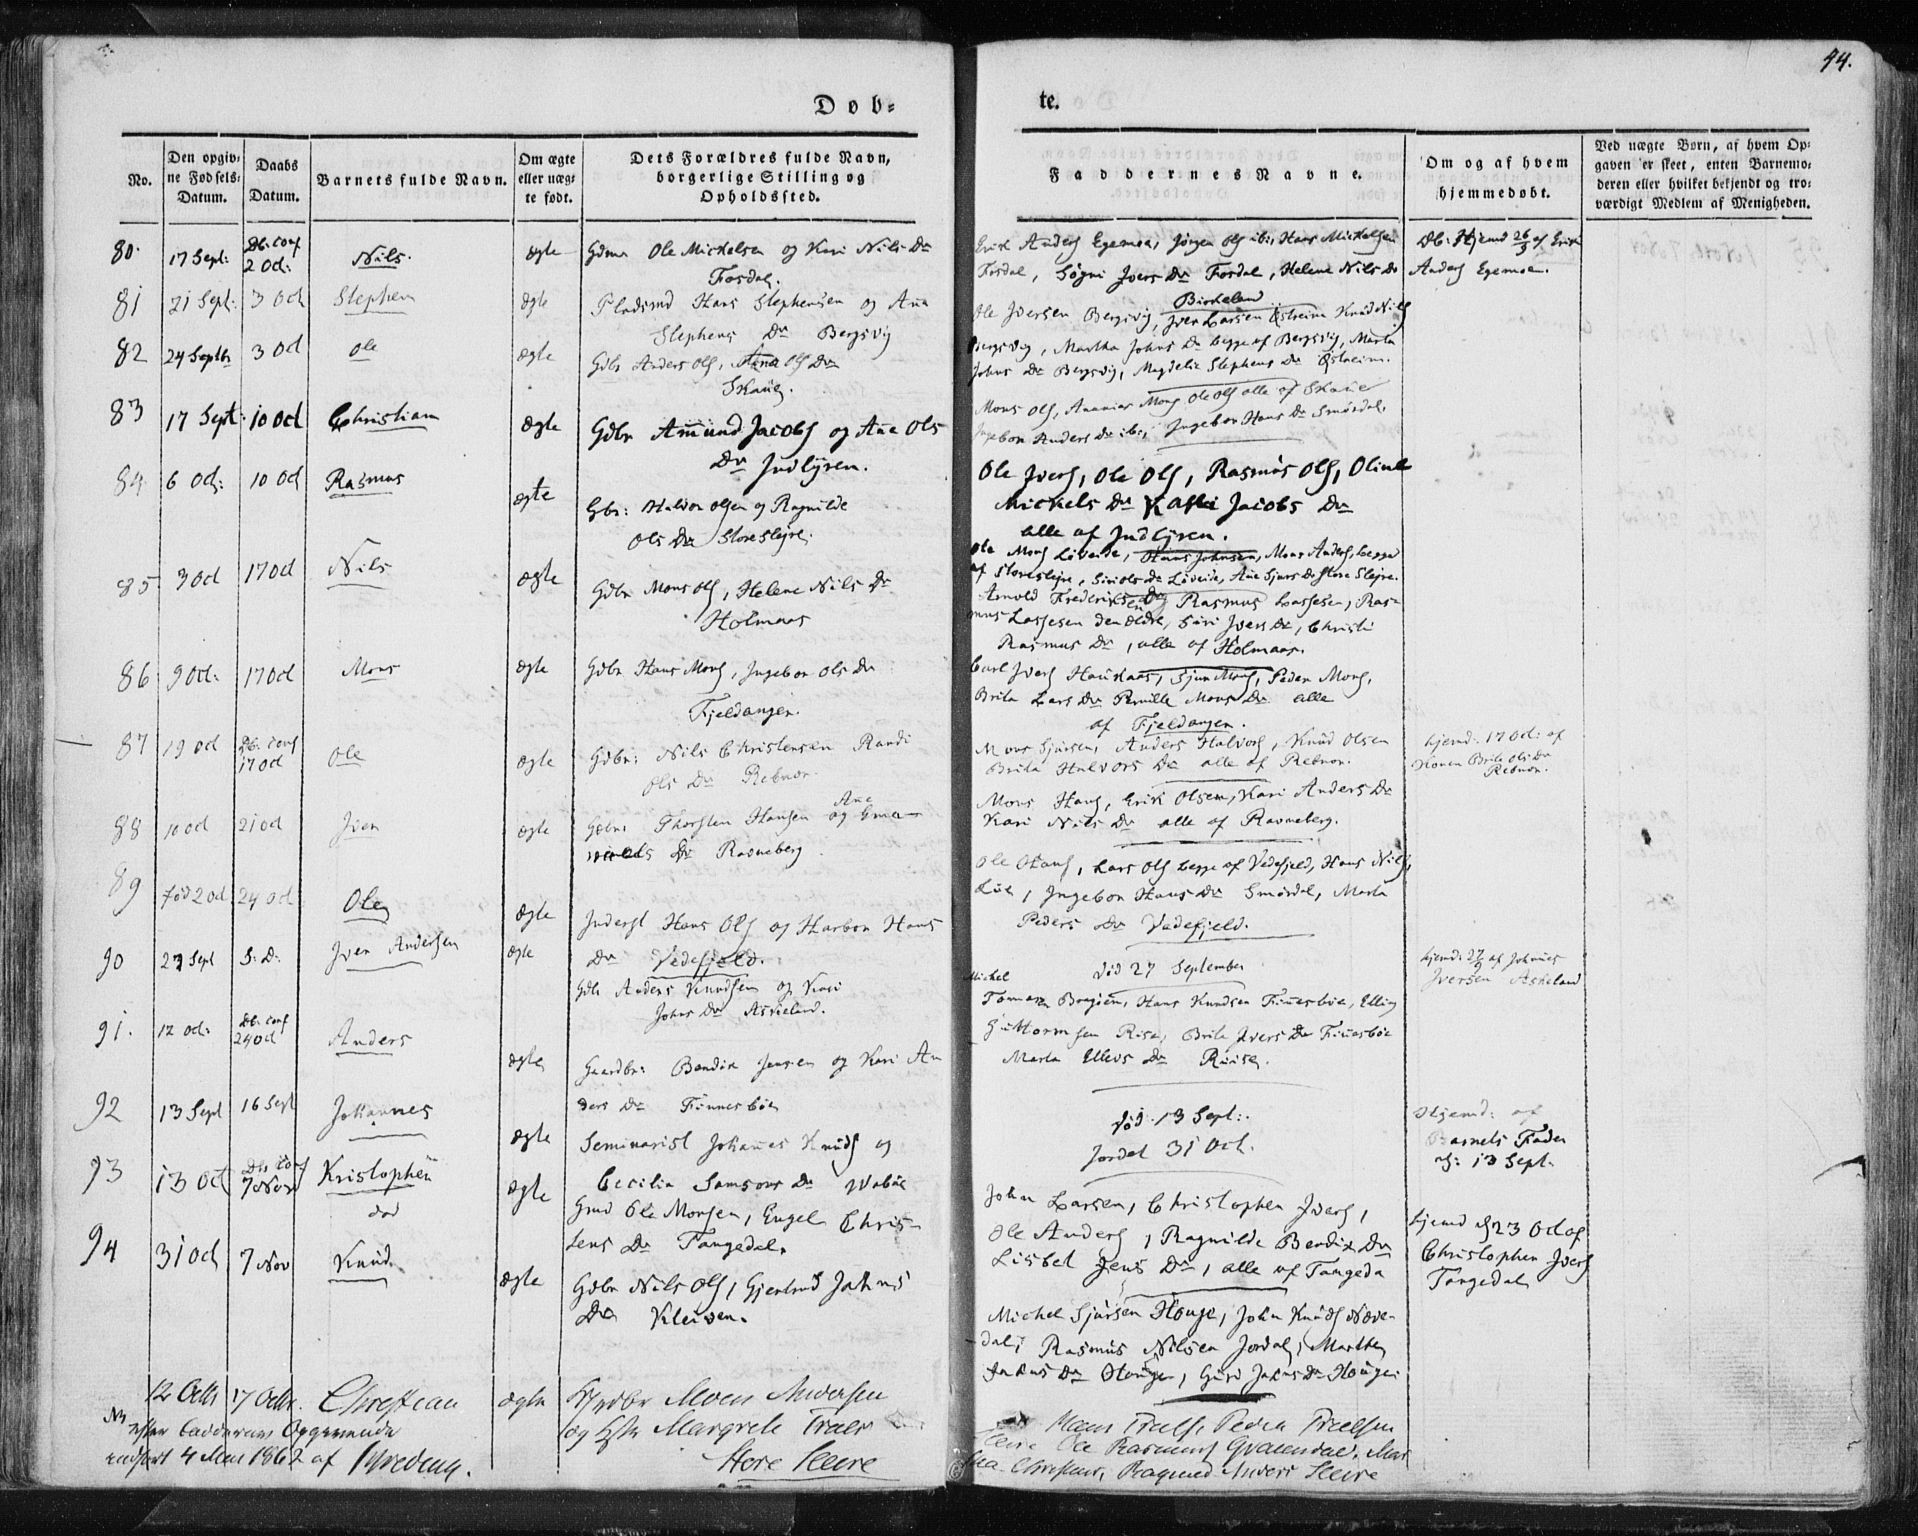 44.
Døb-
te.
No.
Den opgiv-
ne Fødsels-
Datum.
Daabs
Datum.
Barnets fulde Navn.
Om ægte
eller uæg-
te født.
Dets Forældres fulde Navn,
borgerlige Stilling og
Opholdssted.
Faddernes Navne.
Om og af hvem
hjemmedøbt.
Ved uægte Børn, af hvem Op-
gaven er skeet, enten Barnemo-
deren eller hvilket bekjendt og tro-
værdigt Medlem af Menigheden.
80. 17 Sept: Db. conf 2 Od: Nils. ægte Gdmr Ole Mickelsen og Kari Nils Dr
Fosdal.
Erik Anders Egemoe, Jørgen Ols ibi, Hans Mickelsen
Fosdal, Søgni Ivers Dr Fosdal, Helene Nils Dr
Birkeland
Db: Hjemd 26/9 af Erik
Anders Egemoe.
81 21 Sept: 3 Od Stephen ægte Pladsmd Hans Stephensen og Ana
Stephens Dr Bergsvig
Ole Iversen Bergsvig, Iver Larsen Østreim Knud Nils
Bergsvig, Martha Johns Dr begge af Bergsvig, Marta
Johns Dr Bergsvig, Magdelie Stephens Dr Østreim.
82 24 Septbr 3 Od Ole ægte Gdbr Anders Ols, Anna Ols Dr
Skaug.
Mons Ols, Ananias Mons Ole Ols alle af Skaue
Ingebor Anders Dr ibi, Ingebor Hans Dr Smørdal.
83 17 Sept: 10 Od Christian ægte Gdbr Amund Jacobs og Ane Ols
Dr Indlyren.
Ole Ivers, Ole Ols, Rasmus Ols, Oline
Mickels Dr Kari Jacobs Dr
alle af Indlyren.
84 6 Od: 10 Od Rasmus ægte Gbr: Halvor Olsen og Ragnilde
Ols Dr Store Slejre.
Ole Mons Løveide, Hans Johnsen, Mons Anders begge
af Storeslejre, Siri Ols Dr Løveide, Ane Sjurs Dr Store Slejre.
85. 3 Od 17 Od Nils ægte Gdbr Mons Ols, Helene Nils Dr
Holmaas
Arnold Frederiksen Og Rasmus Lassesen, Ras-
mus Lassesen den Ældre, Siri Ivers Dr, Christi
Rasmus Dr, alle af Holmaas.
86 9 Od: 17 Od Mons ægte Gdbr Hans Mons, Ingebor Ols Dr
Fjeldanger.
Carl Ivers Haukaas, Sjur Mons, Peder Mons,
Brita Lars Dr Pernille Mons Dr alle
af Fjeldanger.
87 19 Od Db. conf 17 Od Ole ægte Gdbr: Nils Christensen Randi
Ols Dr Rebnor.
Mons Sjursen, Anders Halvors, Knud Olsen
Brita Halvors Dr alle af Rebnor.
hjemd. 17 Od: af
Konen Brite Ols Dr
Rebnor.
88 10 Od 21 Od Iver ægte Gdbr: Thorsten Hansen og Ane
Dr Ravneberg
Mons Hans, Erik Olsen, Kari Anders Dr
Kari Nils Dr alle af Ravneberg.
89 fød 2 Od 24 Od Ole ægte Inderst Hans Ols og Harbor Hans
Dr Vedefjeld.
Ole Hans, Lars Ols begge af Vedefjeld, Hans Nils,
Lie, Ingebor Hans Dr Smørdal, Marta
Peders Dr Vedefjeld.
90 27 Sept S: D. Iver Andersen ægte Gdb Anders Knudsen og Kari
Johns Dr Askeland.
Død 27 September
hjemd: 27/9 af Johnnes
Iversen Askeland
91. 12 Od: Db. conf 24 Od Anders ægte Gaardbr: Bendix Jensen og Kari An
ders Dr Finnesbøe
Michel
Tommesen Brogien, Hans Knudsen Finnesbøe, Elling
Guttormsen Risa, Brita Ivers Dr Finnesbøe
Marta Ellevs Dr Riise.
92 13 Sept 16 Sept Johannes ægte Seminarist Johannes Knuds og
Cecilia Samsons Dr
Død 13 Sept:.
Jordet 31 Oct.
Hjemd: af
Barnets Fader
d: 13 Sept.
93 13 Od Db. conf 7 Nov Kristophen
død
ægte Gmd Ole Monsen, Engel Chris-
tens Dr Tangedal.
John Larsen, Christophen Ivers,
Ole Anders, Ragnilde Bendix Dr
Lisbet Jens Dr, alle af Tangeda
hjemd d 23 Od af
Christophen Ivers
Tangedal
94 31 Od 7 Nov Knud ægte Gdbr Nils Ols, Gjertrud Jakobs
Dr Kleiven.
Michel Sjursen Houge, John Knuds Næve-
dal, Rasmus Nilsen Jordal, Marthe
Jakobs Dr Houge, Guri Jakobs Dr Houge
12 Octb 17 Octbr. Christian ægte Gaardbr Mons Andersen
og Hst Margrete Troels
Store Leere
Hans Troels, Peder Troelsen
Leere Ole Rasmus Qvamdal, Mar
tha Christens, Ragnild Anders Leere
No efter Faddernes Opgivende
indført 4 Mai 1862 af